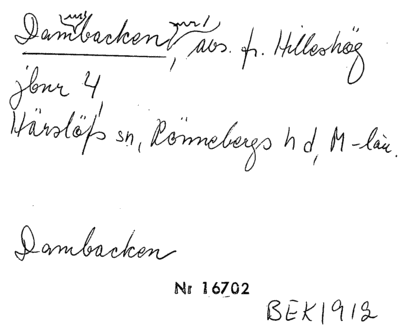 Dambacken, avs. fr. Hilleshög
jbnr 4,
Härslöfs sn, Rönnebergs hd, M-län.
Dambacken
Nr 16702
BEK1912